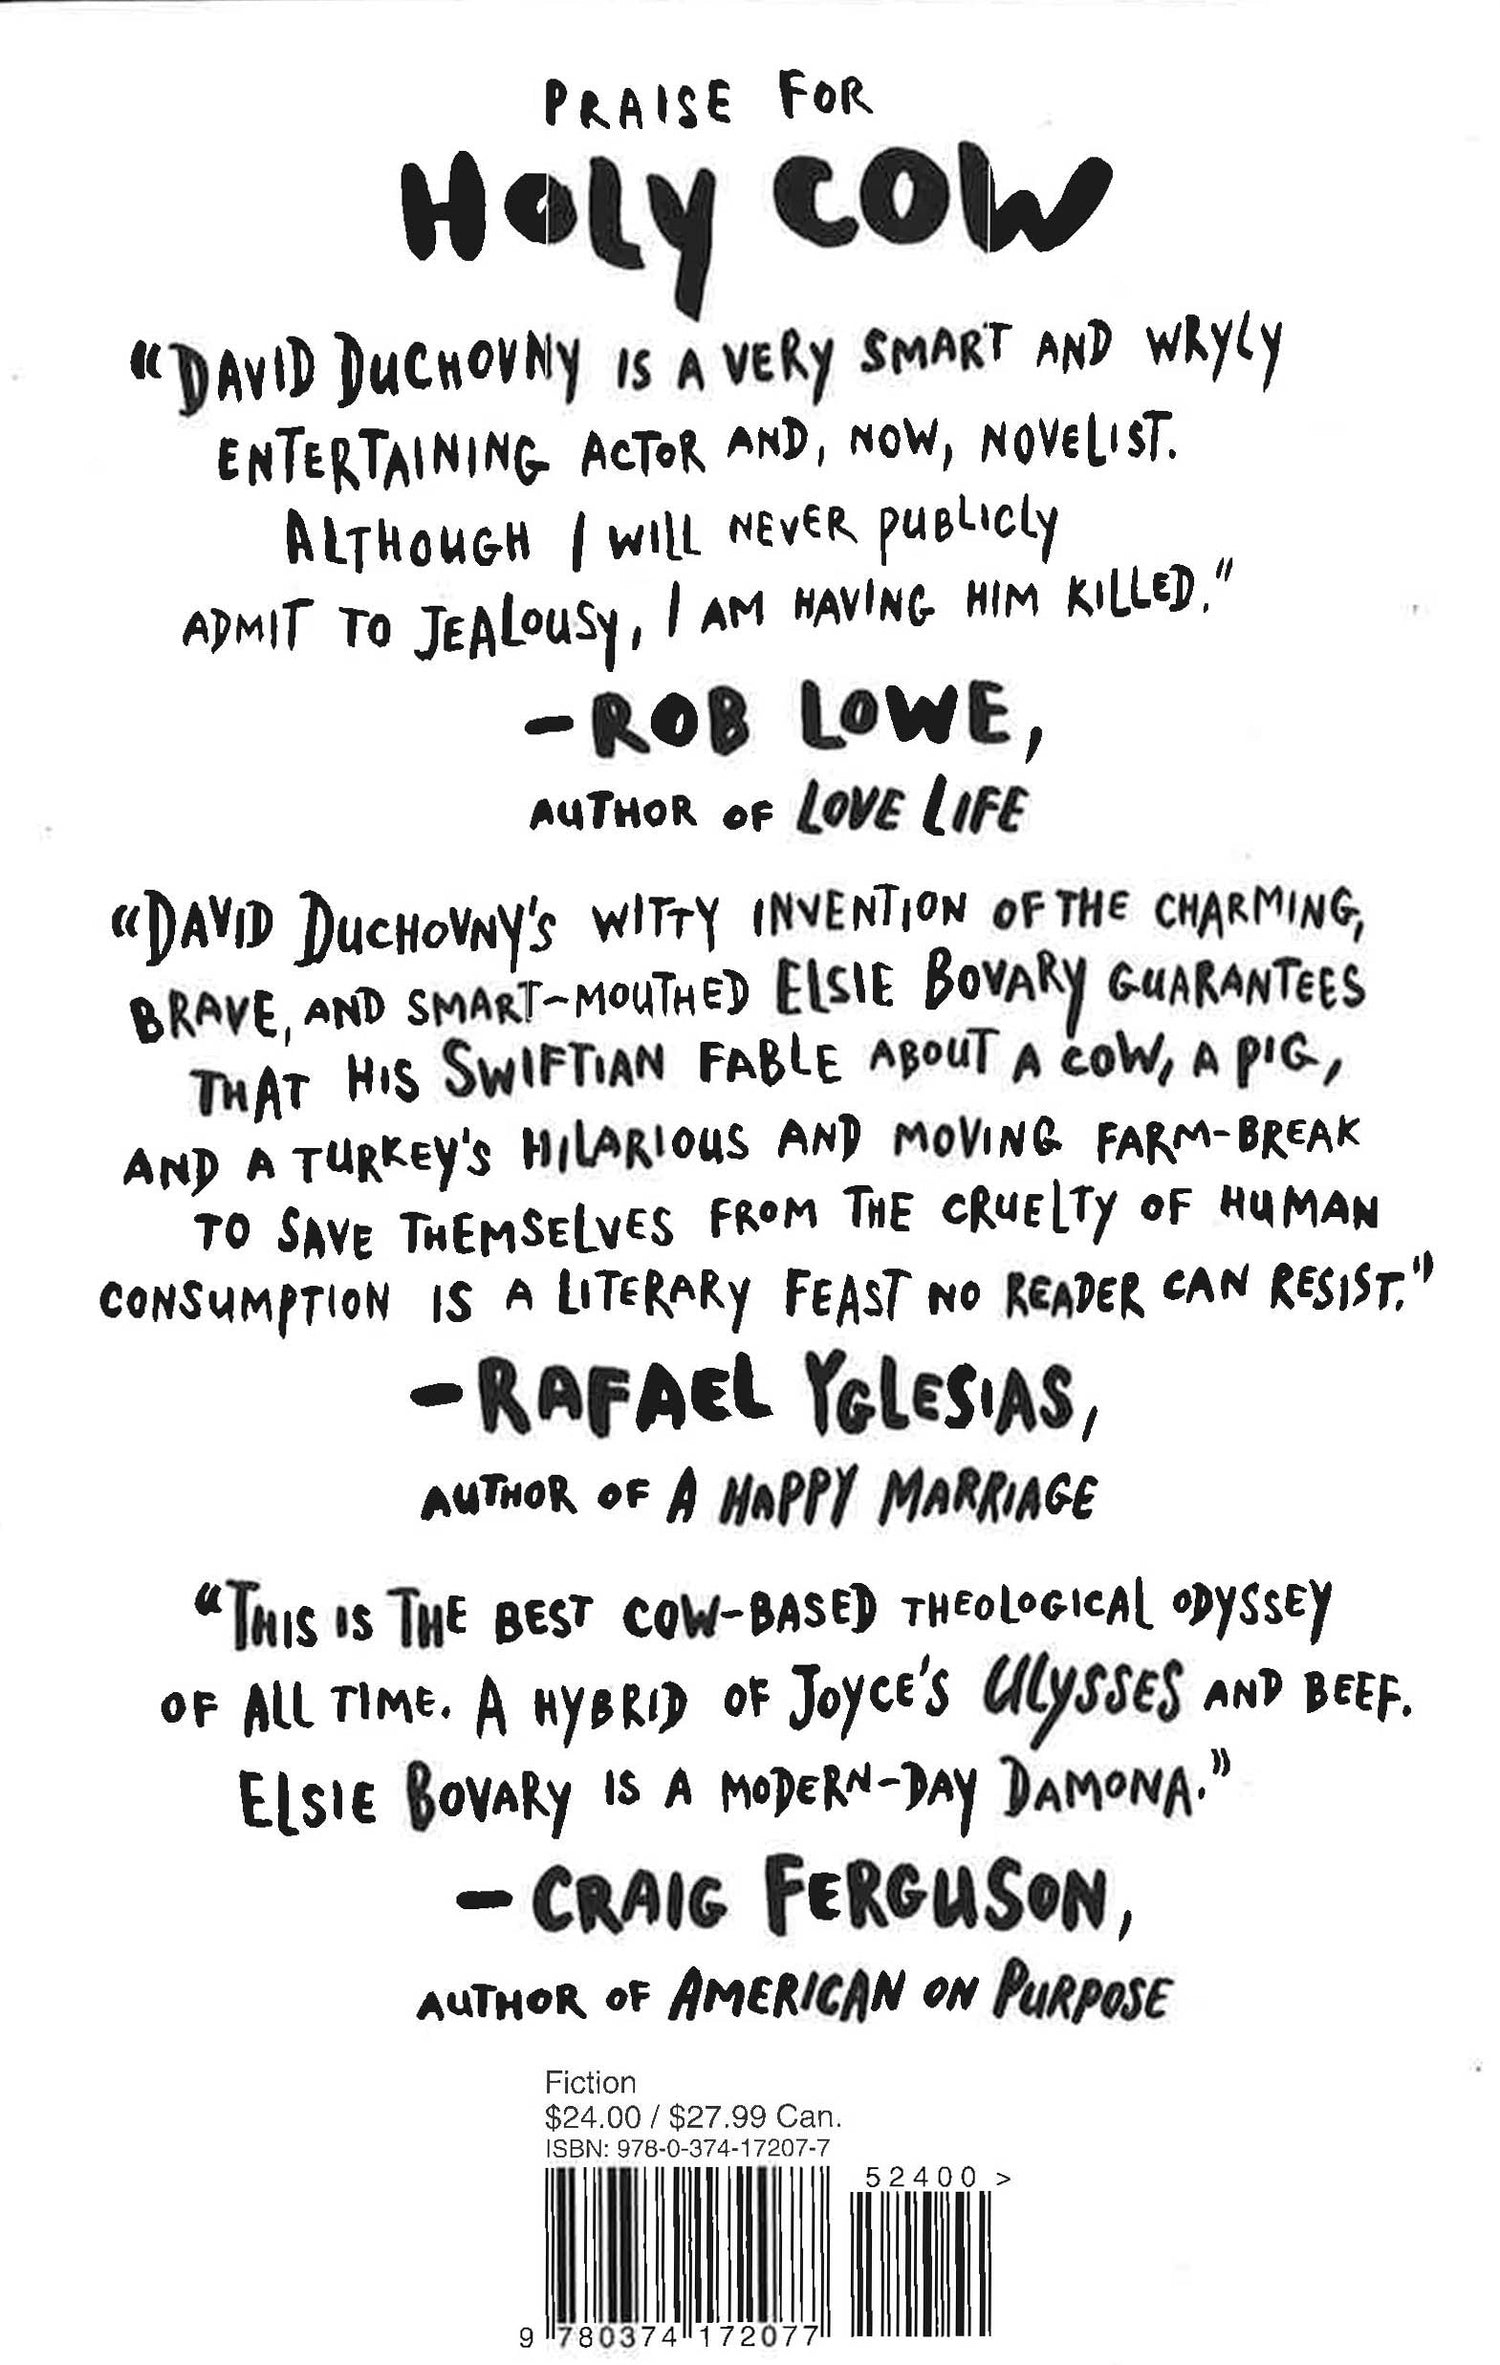 PRAISE FOR
HOLY COW
“DAVID DUCHOVNY IS A VERY SMART AND WRYLY
ENTERTAINING ACTOR AND, NOW, NOVELIST.
ALTHOUGH I WILL NEVER PUBLICLY
ADMIT TO JEALOUSY, I AM HAVING HIM KILLED.”
—ROB LOWE,
AUTHOR OF LOVE LIFE
“DAVID DUCHOVNY'S WITTY INVENTION OF THE CHARMING,
BRAVE, AND SMART-MOUTHED ELSIE BOVARY GUARANTEES
THAT HIS SWIFTIAN FABLE ABOUT A COW, A PIG,
AND A TURKEY'S HILARIOUS AND MOVING FARM-BREAK
TO SAVE THEMSELVES FROM THE CRUELTY OF HUMAN
CONSUMPTION IS A LITERARY FEAST NO READER CAN RESIST.”
—RAFAEL YGLESIAS,
AUTHOR OF A HAPPY MARRIAGE
“THIS IS THE BEST COW-BASED THEOLOGICAL ODYSSEY
OF ALL TIME. A HYBRID OF JOYCE'S ULYSSES AND BEEF.
ELSIE BOVARY IS A MODERN-DAY DAMONA.”
—CRAIG FERGUSON,
AUTHOR OF AMERICAN ON PURPOSE
Fiction
$24.00 / $27.99 Can.
ISBN: 978-0-374-17207-7
52400 >
9 780374 172077